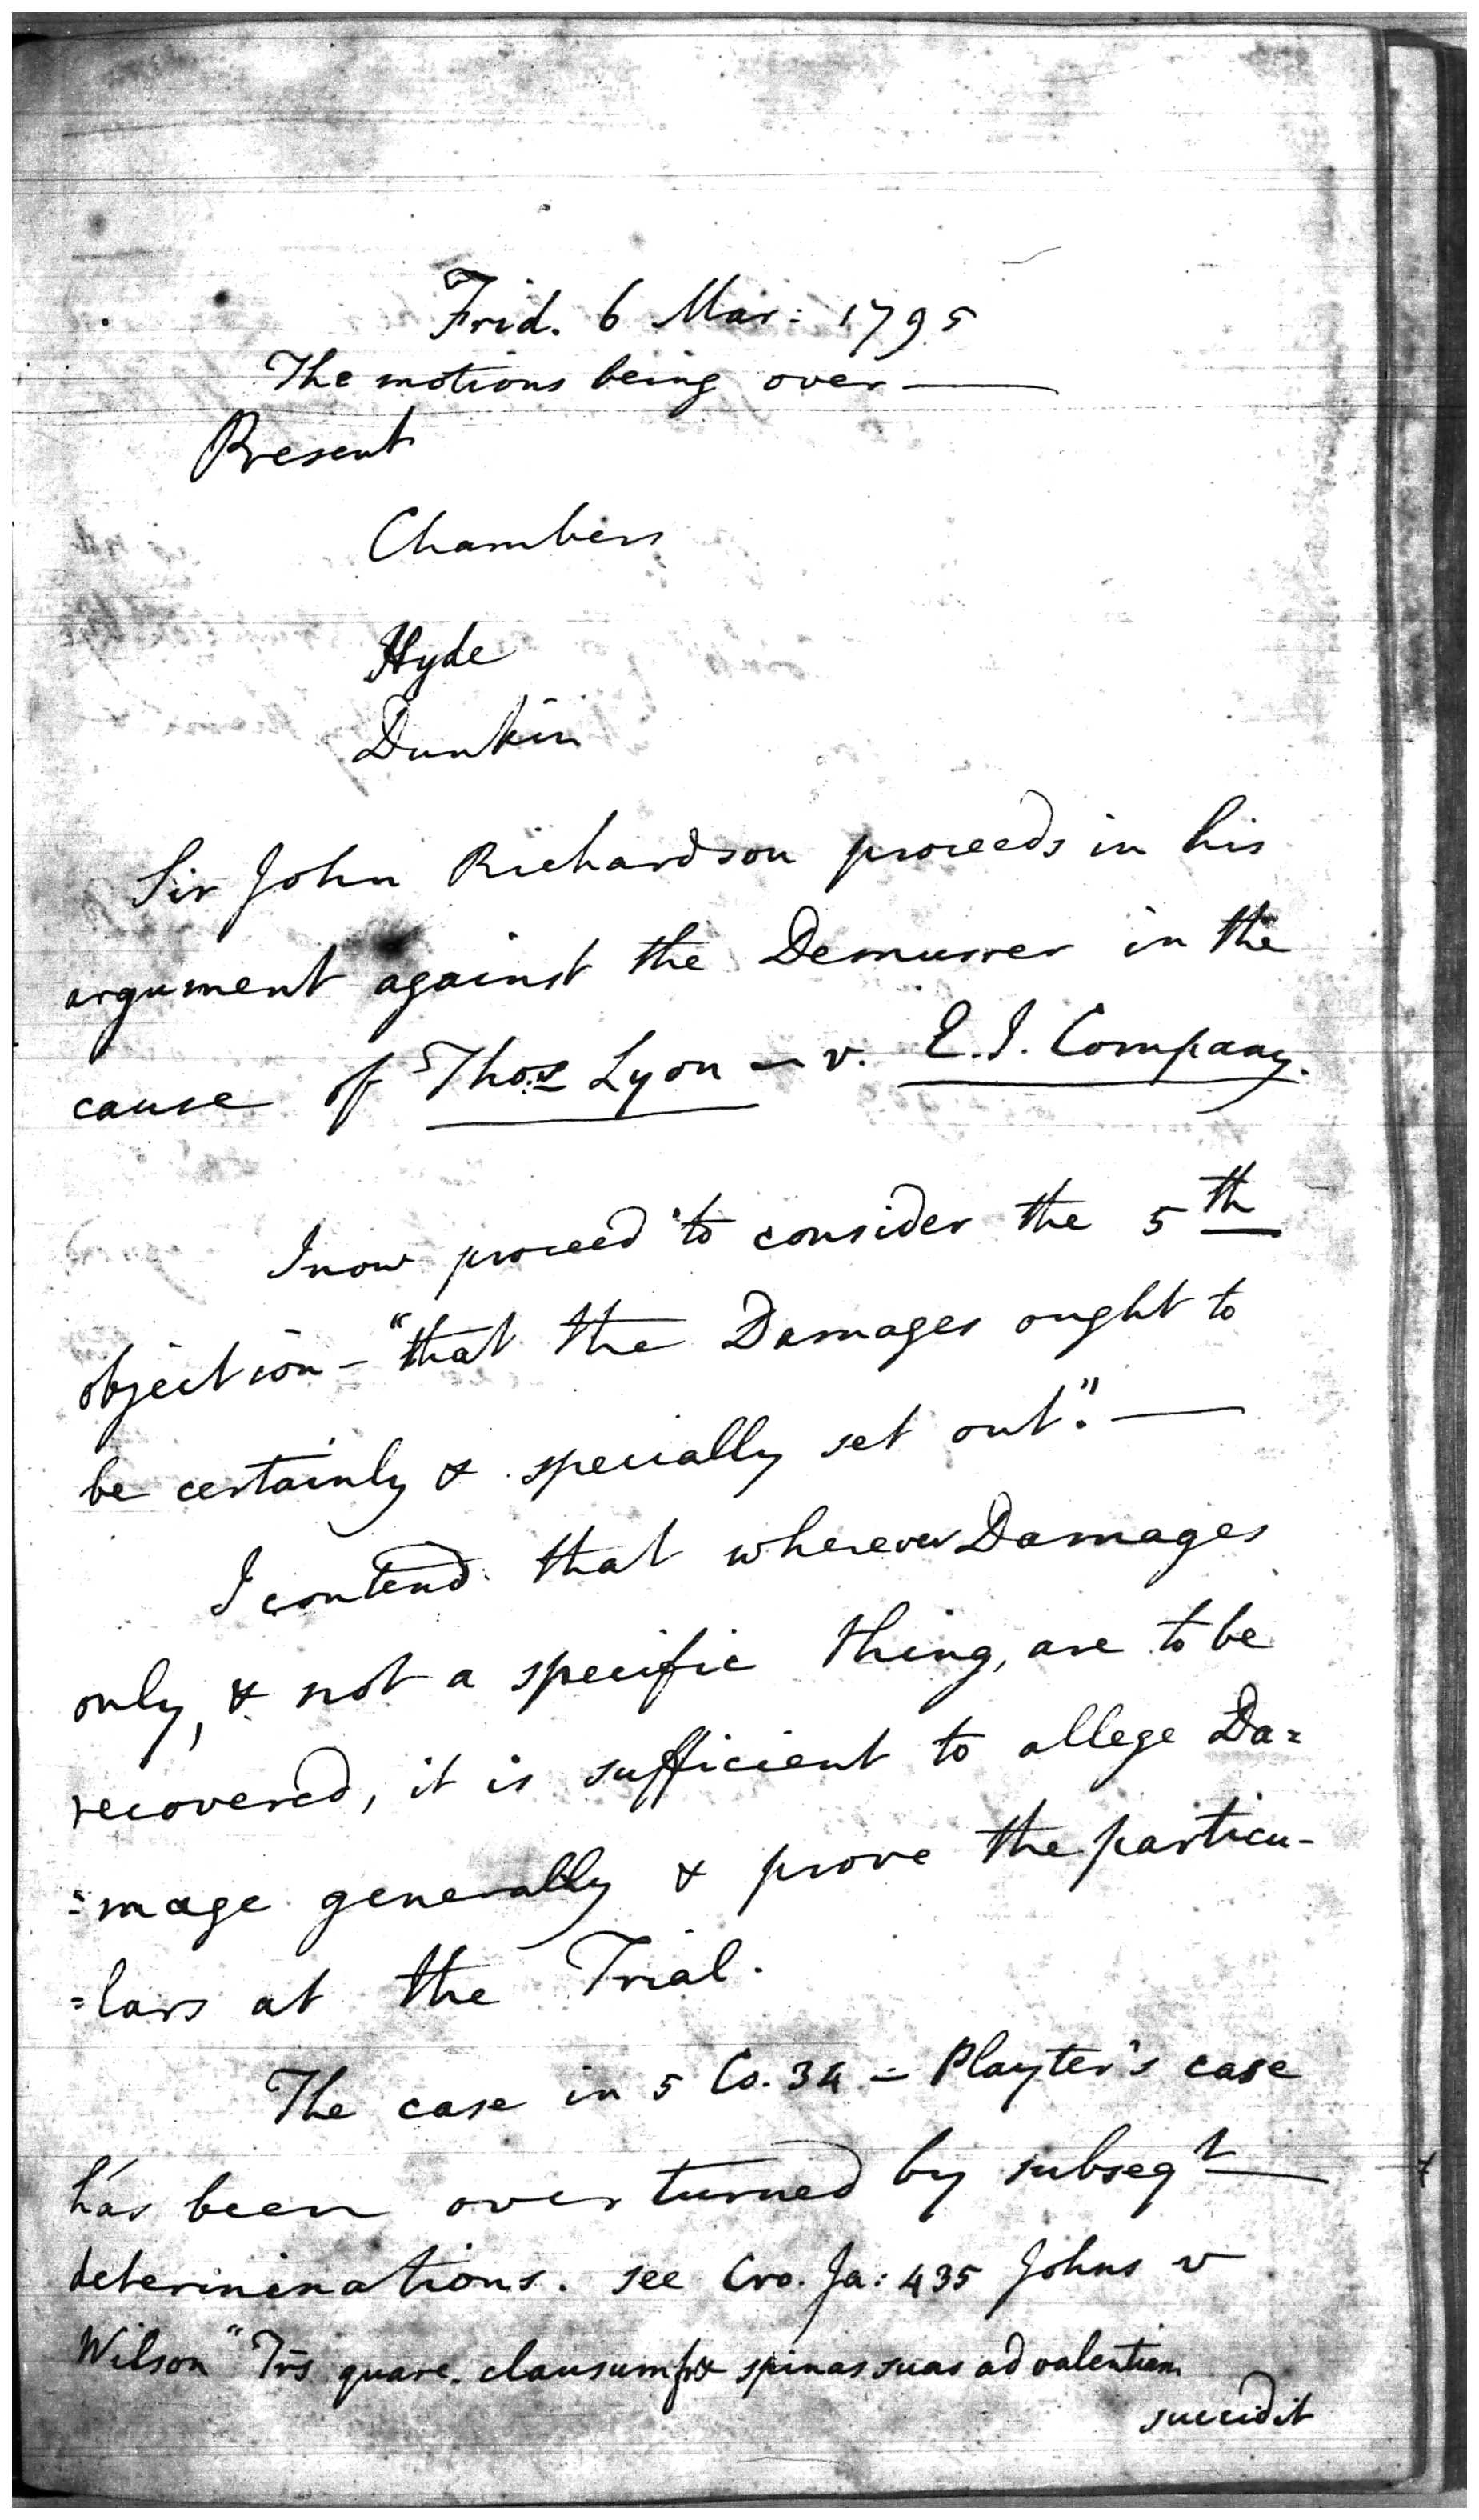 Frid. 6 Mar: 1795
The motions being over —
Present
Chambers
Hyde
Dunkin
Sir John Richardson proceeds in his
argument against the Demurrer in the
cause of Thos. Lyon — v. E. I. Company.
I now proceed to consider the 5th
objection — "that the Damages ought to
be certainly & specially set out". —
I contend that wherever Damages
only, & not a specific thing, are to be
recovered, it is sufficient to allege Da=
=mage generally & prove the particu-
=lars at the Trial.
The case in 5 Co. 34 = Playter's case
has been overturned by subseqt —
determinations. see Cro. Ja: 435 Johns v
Wilson "Trs quare clausum & spinas suas ad valentiam
succidit